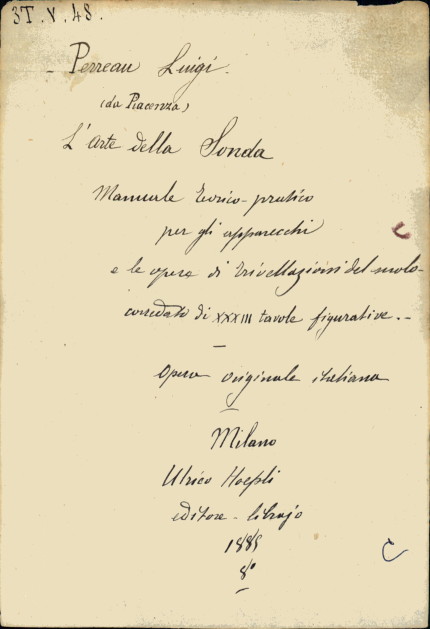 3T.V.48.
Perreau Luigi.
(da Piacenza)
L'arte della Sonda
Manuale Teorico-pratico
per gli apparecchi
e le opere di Trivellazioni del suolo-
corredato di XXXIII tavole figurative.-
Opera originale italiana
Milano
Ulrico Hoepli
editore-librajo
1885
8°